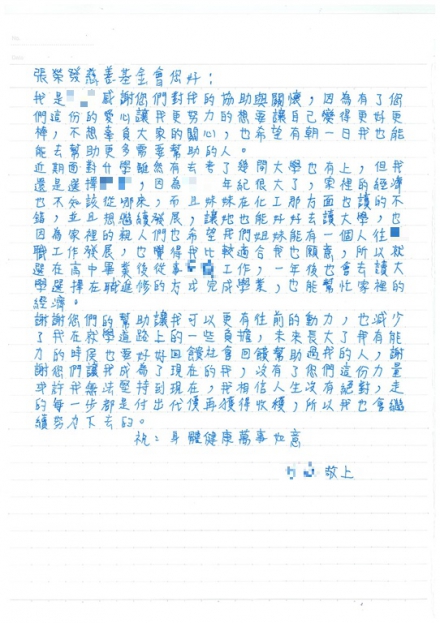 張榮發慈善基金會您好：
我是 感謝您們對我的協助與關懷，因為有了您
們這份的愛心讓我更努力的想要讓自己變得更好更
棒，不想辜負大家的關心，也希望有朝一日我也能
能去幫助更多需要幫助的人。
近期面對升學雖然有去考了幾間大學也有上，但我
還是選擇 ，因為 年紀很大了，家裡的經濟
也不知該從哪來，而且妹妹在化工那方面也讀的不
錯，並且想繼續發展，讓她也能好好去讀大學，也
因為家裡的親人們也希望我們姐妹能有一個人往
職工作發展，也覺得我比較適合我也願意，所以就
選在高中畢業後從事 工作，一年後也會去讀大
學選擇在職進修的方式完成學業，也能幫忙家裡的
經濟。
謝謝您們的幫助讓我可以更有往前的動力，也減少
了我在就學道路上的一些負擔，未來長大了我有能
力的時候也要好好回饋社會回饋幫助過我的人，謝
謝您們讓我成為了現在的我，沒有了您們這份力量
或許我無法堅持到現在，我相信人生沒有絕對，走
的每一步都是付出代價再獲得收穫，所以我也會繼
續努力下去的。
祝：身體健康萬事如意
敬上